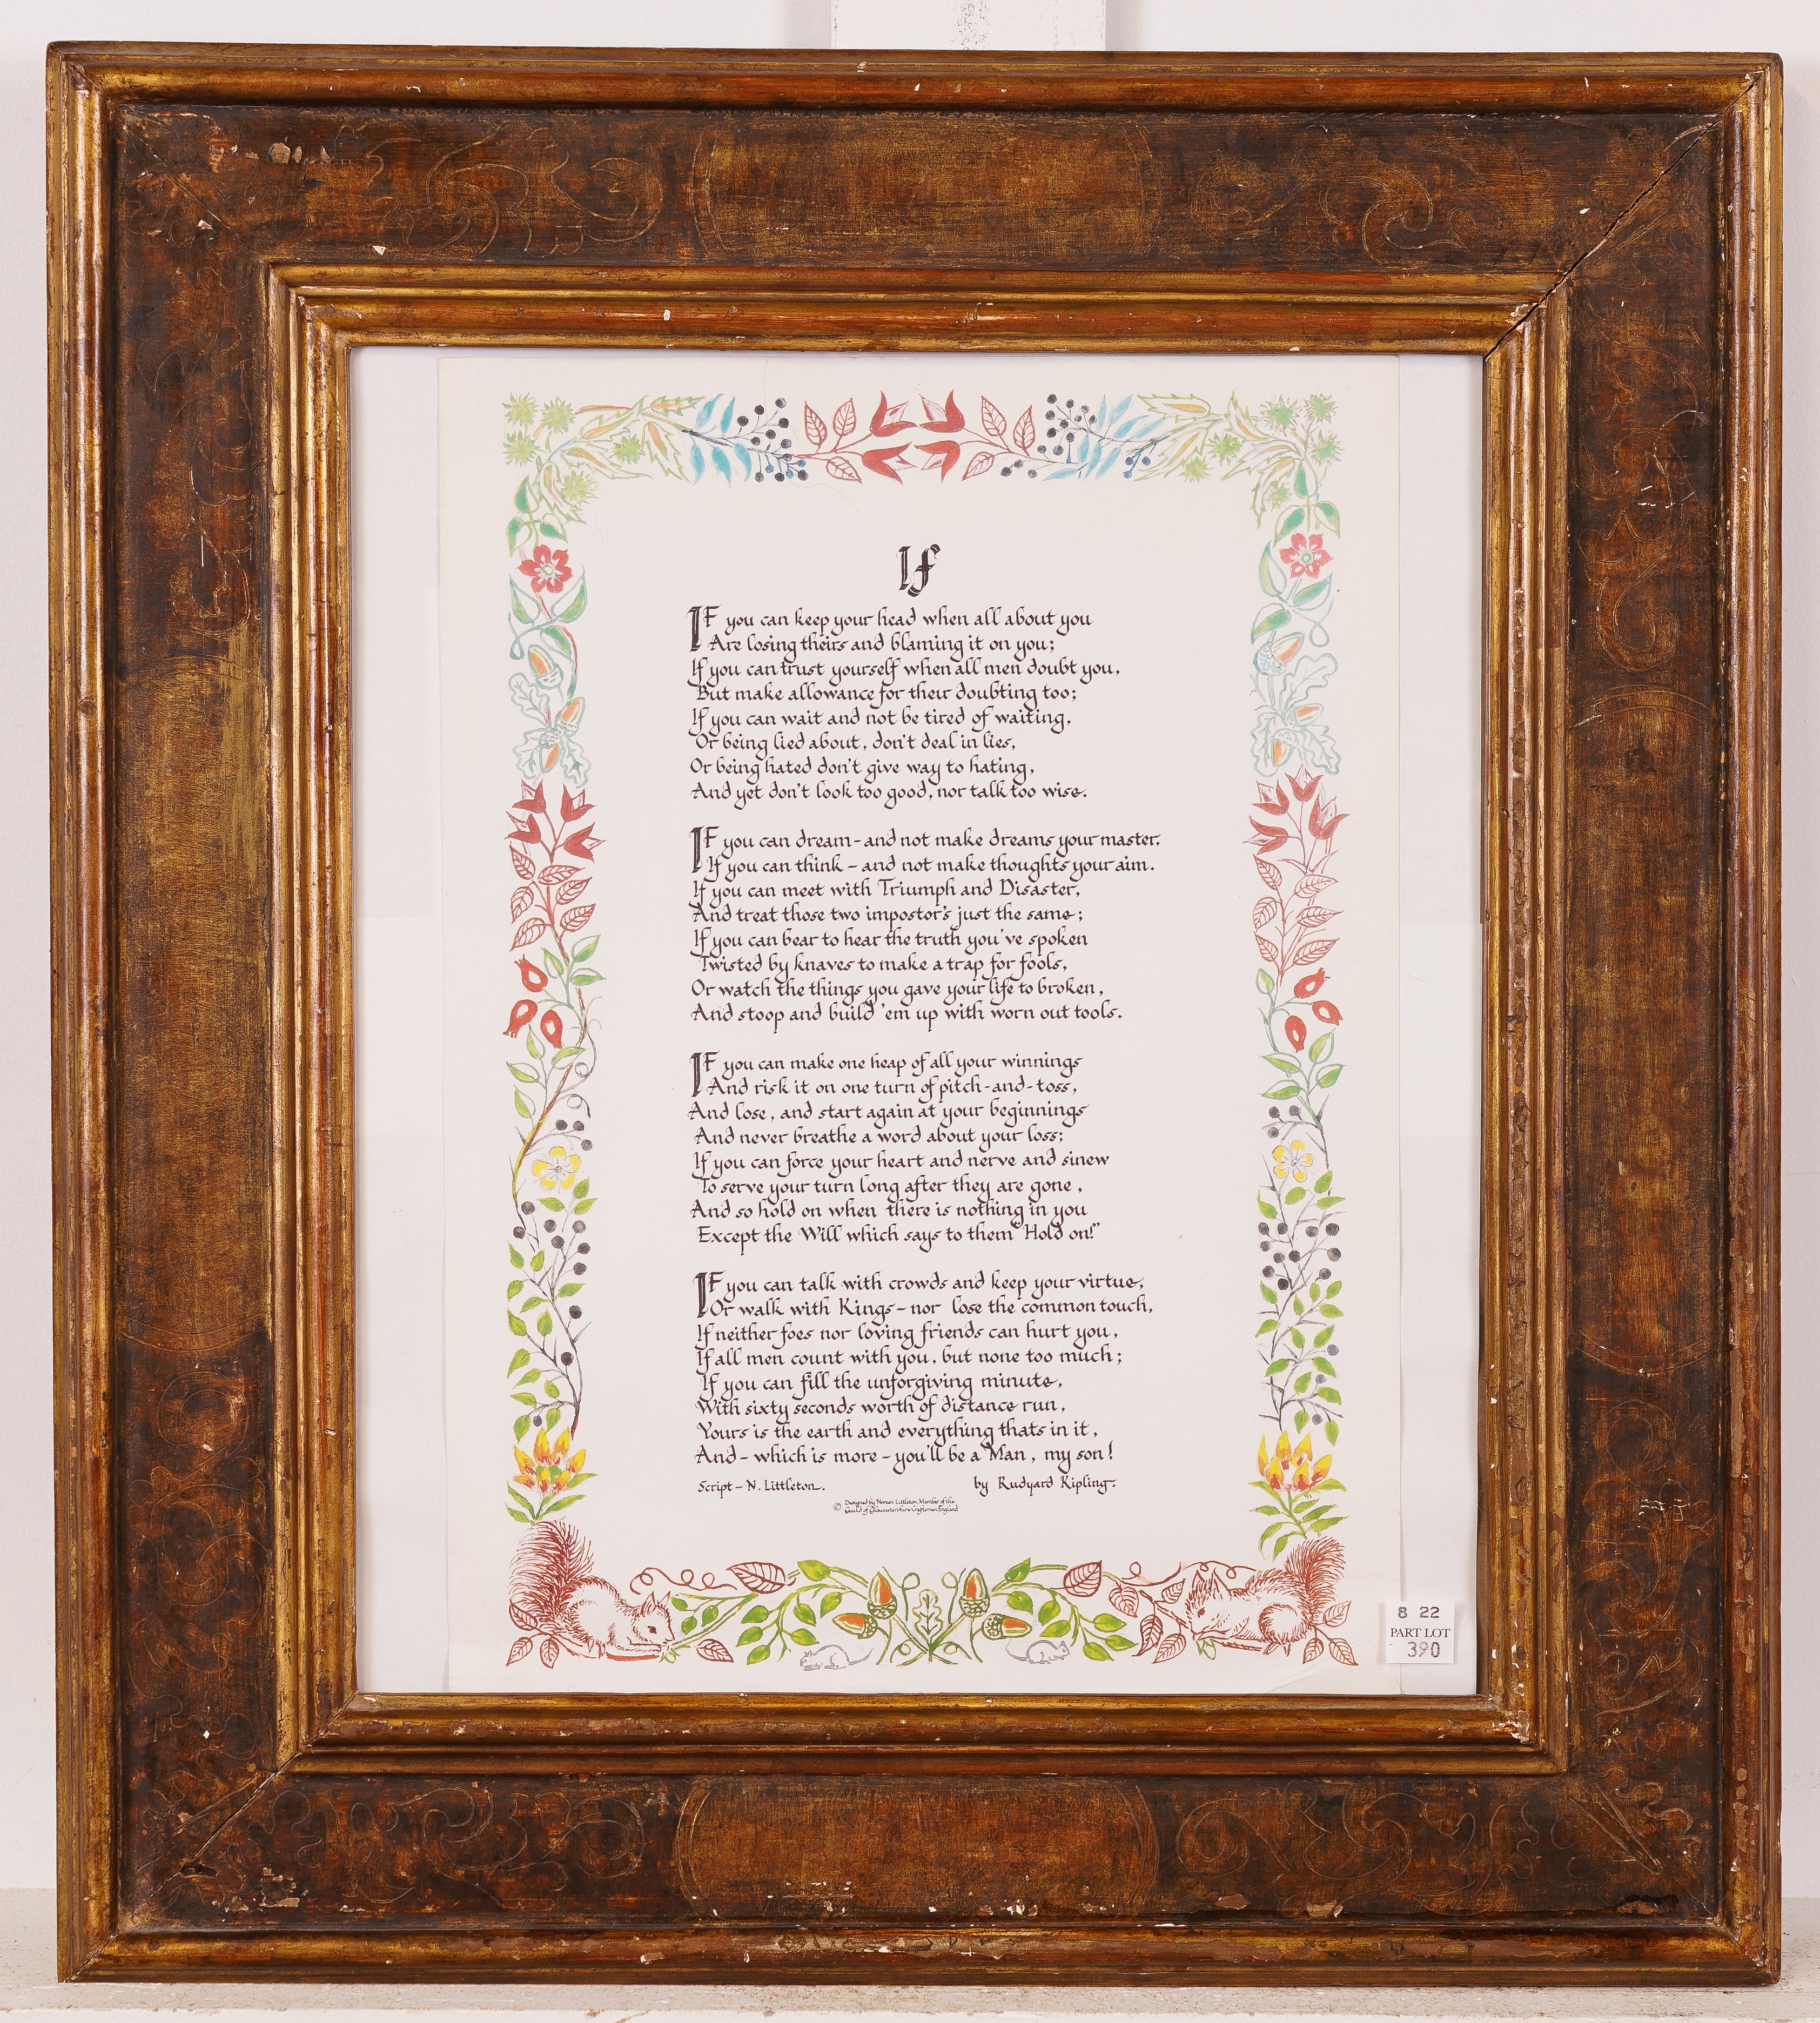 If
IF you can keep your head when all about you
Are losing theirs and blaming it on you;
If you can trust yourself when all men doubt you,
But make allowance for their doubting too;
If you can wait and not be tired of waiting,
Or being lied about, don't deal in lies,
Or being hated don't give way to hating,
And yet don't look too good, nor talk too wise.
IF you can dream - and not make dreams your master.
If you can think - and not make thoughts your aim.
If you can meet with Triumph and Disaster,
And treat those two impostor's just the same;
If you can bear to hear the truth you've spoken
Twisted by knaves to make a trap for fools,
Or watch the things you gave your life to broken,
And stoop and build 'em up with worn out tools.
IF you can make one heap of all your winnings
And risk it on one turn of pitch-and-toss,
And lose, and start again at your beginnings
And never breathe a word about your loss;
If you can force your heart and nerve and sinew
To serve your turn long after they are gone,
And so hold on when there is nothing in you
Except the Will which says to them "Hold on!"
IF you can talk with crowds and keep your virtue,
Or walk with Kings - nor lose the common touch,
If neither foes nor loving friends can hurt you,
If all men count with you, but none too much;
If you can fill the unforgiving minute,
With sixty seconds worth of distance run,
Yours is the earth and everything thats in it,
And - which is more - you'll be a Man, my son!
Script - N. Littleton. by Rudyard Kipling.
© Designed by Norman Littleton Member of the
Guild of Gloucestershire Craftsmen England
8 22
PART LOT
390